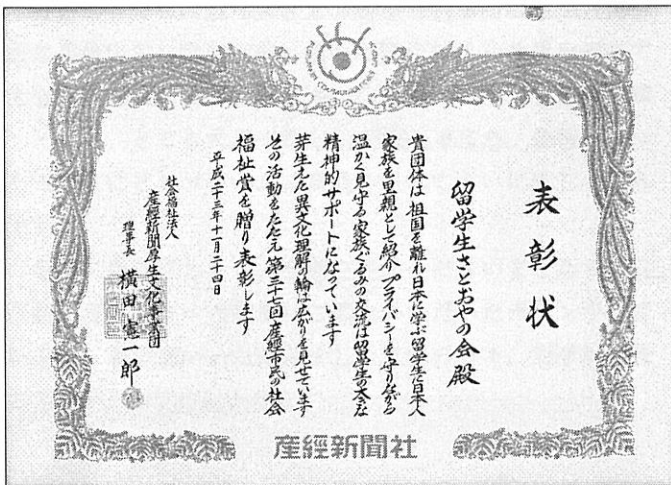 表彰状
留学生さとおやの会殿
貴団体は祖国を離れ日本に学ぶ留学生に日本人
家族を里親として紹介プライバシーを守りながら
温かく見守る家族ぐるみの交流は留学生の大きな
精神的サポートになっています
芽生えた異文化理解の輪は広がりを見せています
その活動をたたえ第三十七回産經市民の社会
福祉賞を贈り表彰します
平成二十三年十一月二十四日
社会福祉法人
産經新聞厚生文化事業団
理事長 横田憲一郎
産經新聞社